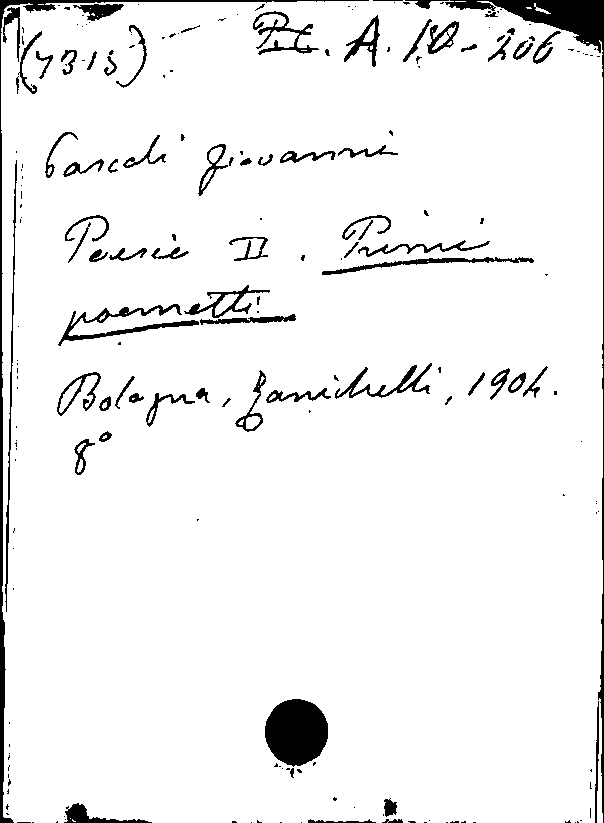 (7315) P.C. A. 10-206
Pascoli Giovanni
Poesie II. Primi
poemetti
Bologna, Zanichelli, 1904.
8°